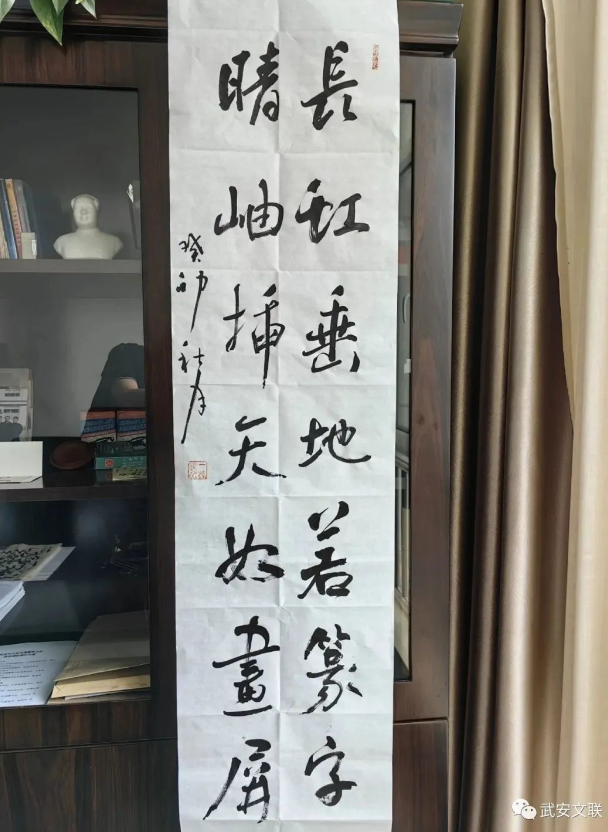 長虹垂地若篆字
晴岫插天如畫屏
癸卯秋月
武安文联